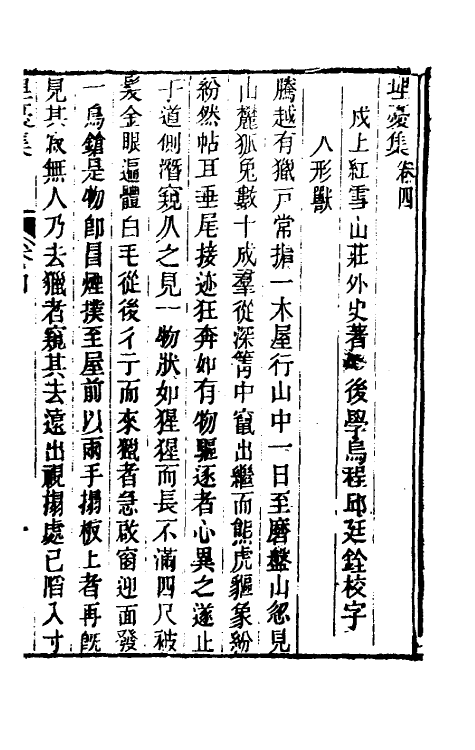 埋憂集卷四
戍上紅雪山莊外史著 後學烏程邱廷銓校字
人形獸
騰越有獵戸常擕一木屋行山中一日至磨盤山忽見
山麓狐兎數十成羣從深箐中竄出繼而熊虎貙象紛
紛然帖耳垂尾接迹狂奔如有物驅逐者心異之遂止
于道側潛窺久之見一物狀如猩猩而長不滿四尺被
髮金眼遍體白毛從後彳亍而來獵者急啟窗迎面發
一鳥鎗是物卽冒煙撲至屋前以兩手搨板上者再旣
見其寂無人乃去獵者窺其去遠出視搨處已䧟入寸
埋憂集
卷四
一